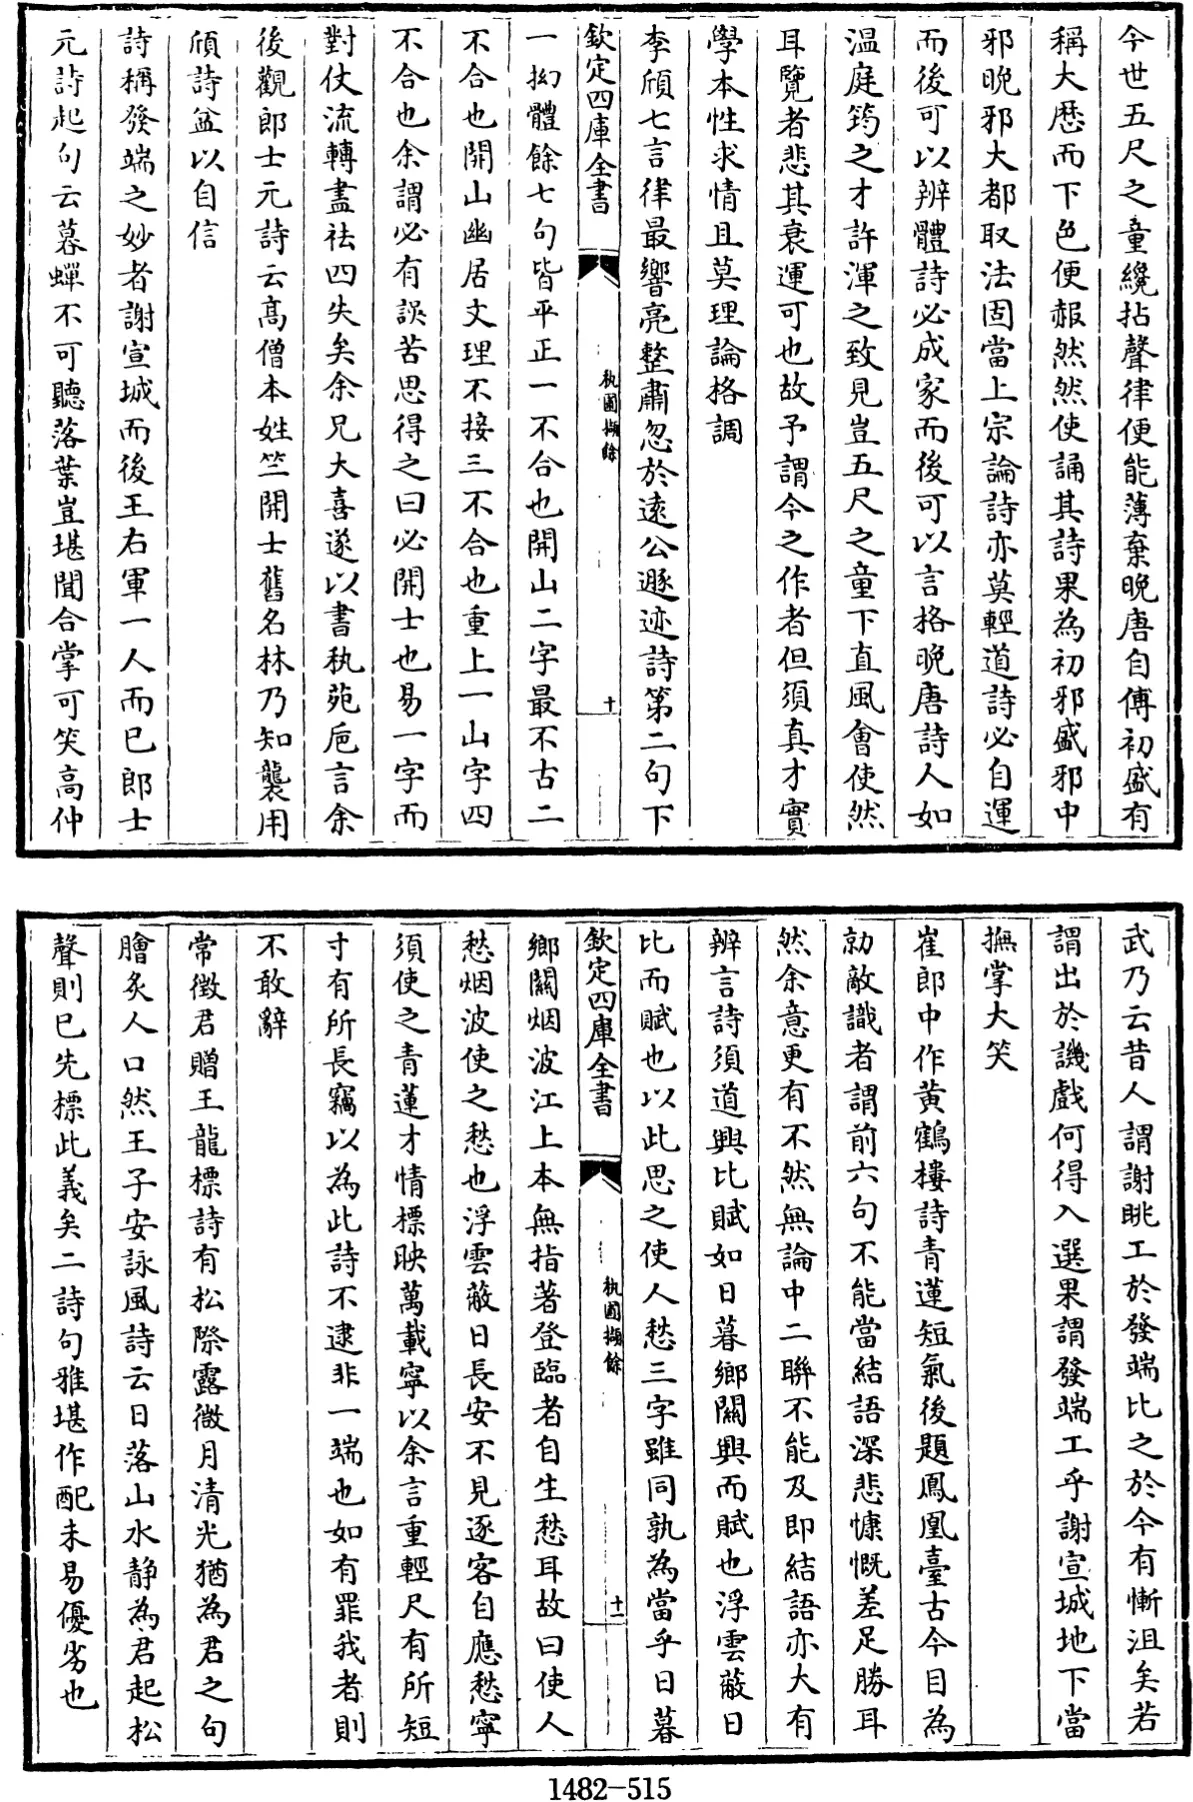 今世五尺之童纔拈聲律便能薄棄晚唐自傅初盛有
稱大厯而下色便赧然然使誦其詩果為初邪盛邪中
邪晚邪大都取法固當上宗論詩亦莫輕道詩必自運
而後可以辨體詩必成家而後可以言格晚唐詩人如
温庭筠之才許渾之致見豈五尺之童下直風會使然
耳覽者悲其衰運可也故予謂今之作者但須真才實
學本性求情且莫理論格調
李頎七言律最響亮整肅忽於遠公遯迹詩第二句下
欽定四庫全書
執圃擷餘
十
一拗體餘七句皆平正一不合也開山二字最不古二
不合也開山幽居文理不接三不合也重上一山字四
不合也余謂必有誤苦思得之曰必開士也易一字而
對仗流轉盡祛四失矣余兄大喜遂以書執苑巵言余
後觀郎士元詩云髙僧本姓竺開士舊名林乃知襲用
頎詩益以自信
詩稱發端之妙者謝宣城而後王右軍一人而已郎士
元詩起句云暮蟬不可聽落葉豈堪聞合掌可笑高仲
武乃云昔人謂謝眺工於發端比之於今有慚沮矣若
謂出於譏戲何得入選果謂發端工乎謝宣城地下當
撫掌大笑
崔郎中作黄鶴樓詩青蓮短氣後題鳳凰臺古今目為
勍敵識者謂前六句不能當結語深悲慷慨差足勝耳
然余意更有不然無論中二聯不能及即結語亦大有
辨言詩須道興比賦如日暮鄉關興而賦也浮雲蔽日
比而賦也以此思之使人愁三字雖同孰為當乎日暮
欽定四庫全書
執圃擷餘
十一
鄉關烟波江上本無指著登臨者自生愁耳故曰使人
愁烟波使之愁也浮雲蔽日長安不見逐客自應愁寧
須使之青蓮才情標映萬載寧以余言重輕尺有所短
寸有所長竊以為此詩不逮非一端也如有罪我者則
不敢辭
常徵君贈王龍標詩有松際露微月清光猶為君之句
膾炙人口然王子安詠風詩云日落山水静為君起松
聲則已先標此義矣二詩句雅堪作配未易優劣也
1482-515